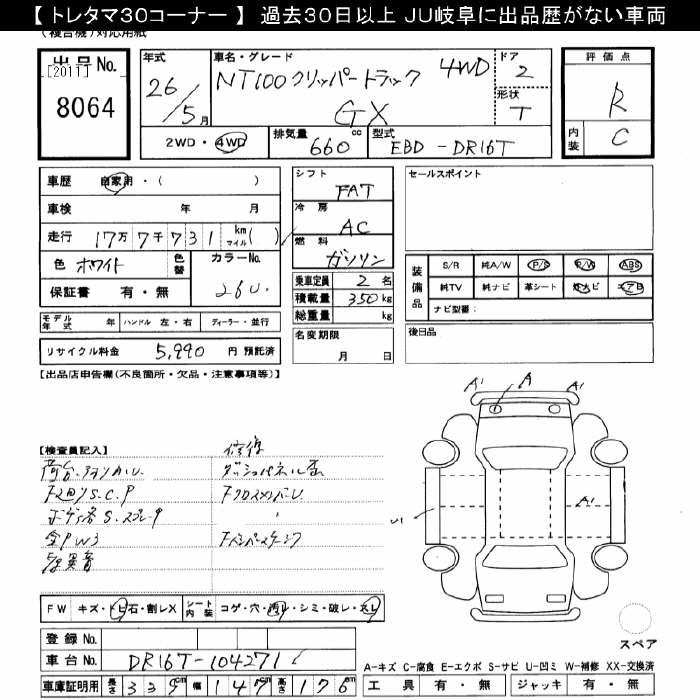 【 トレタマ30コーナー 】 過去30日以上 JU岐阜に出品歴がない車両
(複合機)対応用紙
出品No.
[2011]
8064
年式
26/5月
車名・グレード
NT100クリッパートラック 4WD
GX
ドア
2
形状
T
評価点
R
内装
C
2WD・4WD
排気量
660cc
型式
EBD-DR16T
車歴 自家用・( )
車検 年 月
走行 17万7千731 km マイル( )
色 ホワイト 色替
カラーNo.
26U
保証書 有・無
モデル年式 年 ハンドル 左・右 ディーラー・並行
リサイクル料金 5,990 円 預託済
シフト
FAT
冷房
AC
燃料
ガソリン
乗車定員 2 名
積載量 350 kg
総重量 kg
名変期限
月 日
セールスポイント
装備品
S/R 純A/W P/S P/W ABS
純TV 純ナビ 革シート 他ナビ エアB
ナビ型番:
後日品
【出品店申告欄(不良箇所・欠品・注意事項等)】
【検査員記入】
修復
A' A A'
A'
FW キズ・トビ石・割レX シート内装 コゲ・穴・汚レ・シミ・破レ・スレ
登録No.
車台No. DR16T-104271
車庫証明用 長さ 339cm 幅 147cm 高さ 176cm
スペア
A-キズ C-腐食 E-エクボ S-サビ U-凹ミ W-補修 XX-交換済
工具 有・無 ジャッキ 有・無